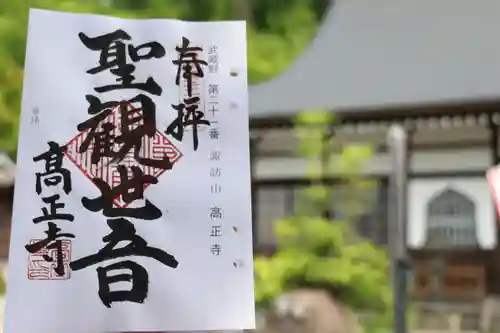 武蔵野 第二十一番 諏訪山 高正寺
奉拝
聖観世音
高正寺